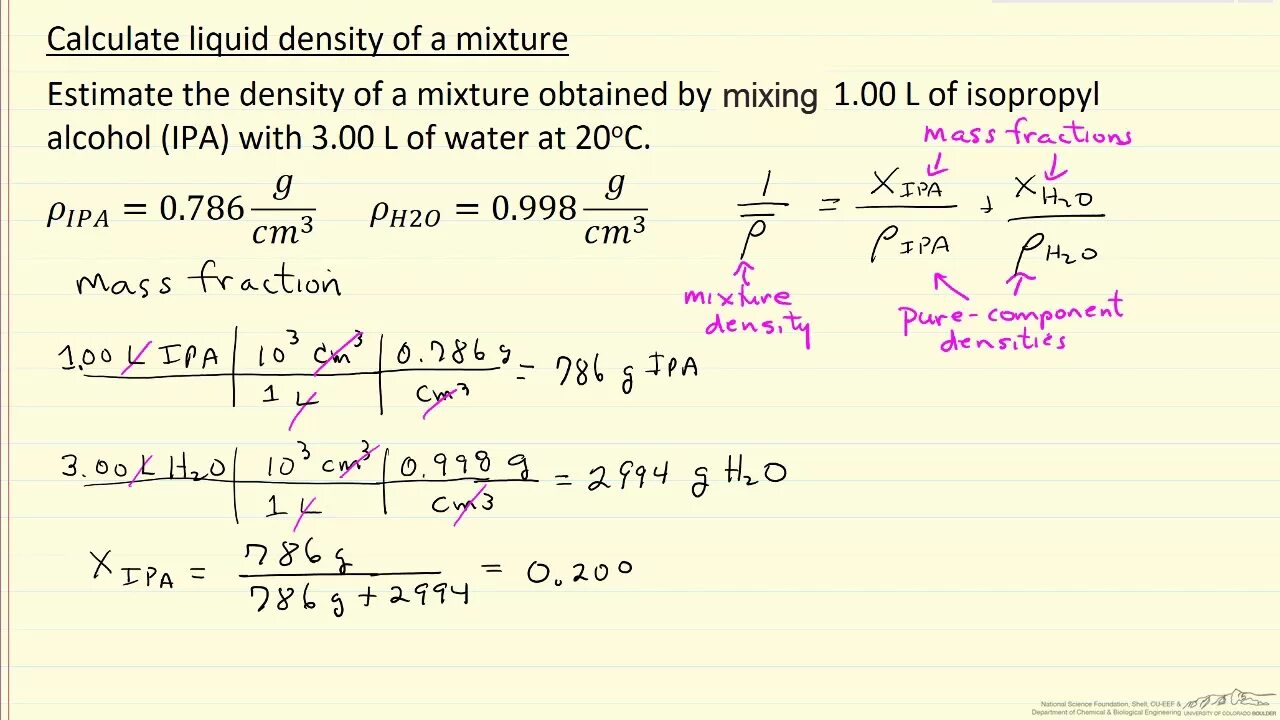 Calculate liquid density of a mixture
Estimate the density of a mixture obtained by mixing 1.00 L of isopropyl
alcohol (IPA) with 3.00 L of water at 20°C.
mass fractions
ρ_IPA = 0.786 g/cm³ ρ_H2O = 0.998 g/cm³
1/ρ̅ = X_IPA/ρ_IPA + X_H₂O/ρ_H₂O
mixture
density
pure-component
densities
mass fraction
1.00 L IPA | 10³ cm³ / 1 L | 0.786 g / cm³ = 786 g IPA
3.00 L H₂O | 10³ cm³ / 1 L | 0.998 g / cm3 = 2994 g H₂O
X_IPA = 786 g / 786 g + 2994 = 0.200
National Science Foundation, Shell, CU-EEF &
Department of Chemical & Biological Engineering UNIVERSITY OF COLORADO BOULDER